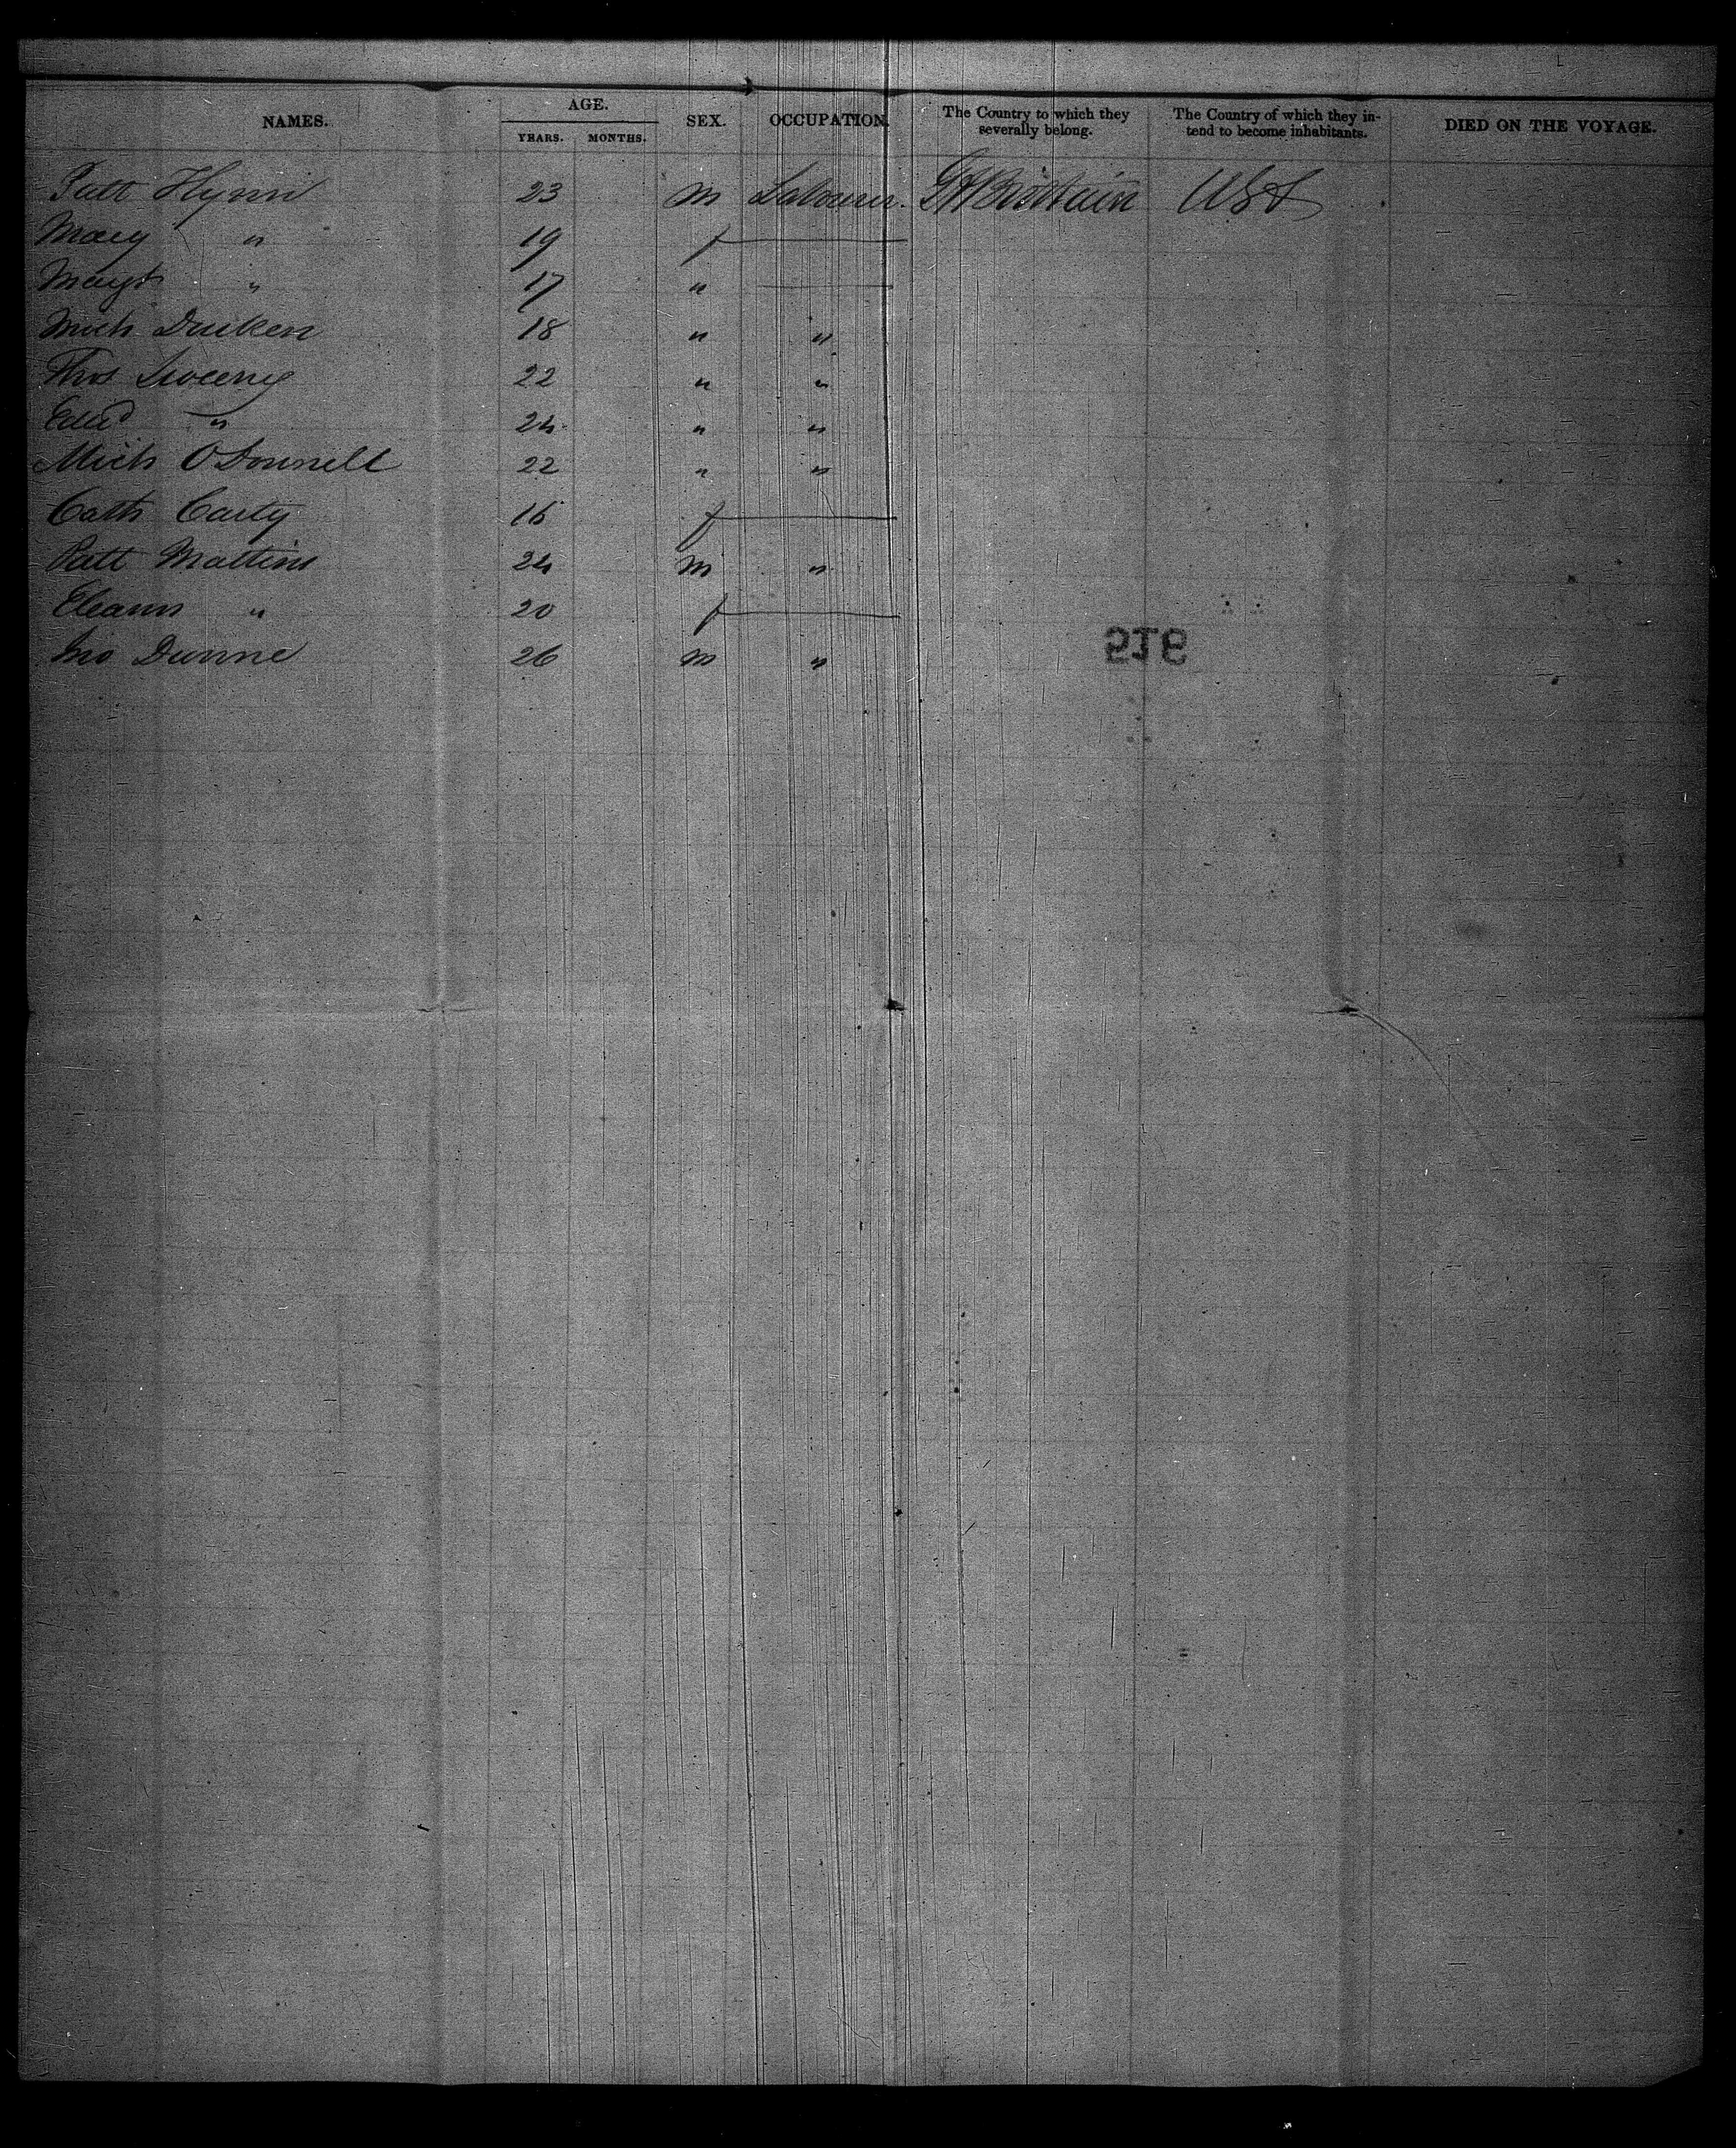 NAMES. AGE. YEARS. MONTHS. SEX. OCCUPATION. The Country to which they severally belong. The Country of which they intend to become inhabitants. DIED ON THE VOYAGE.
Patt Flynn 23 m Labourer. Gt Brittain USA
Mary " 19 f
Margt " 17 "
Mich 18 " "
Thos Sweeny 22 " "
Edwd " 24 " "
Mich O'Donnell 22 " "
Cath 16 f
Patt 24 m "
" 20 f
Jno Dunne 26 m "
516